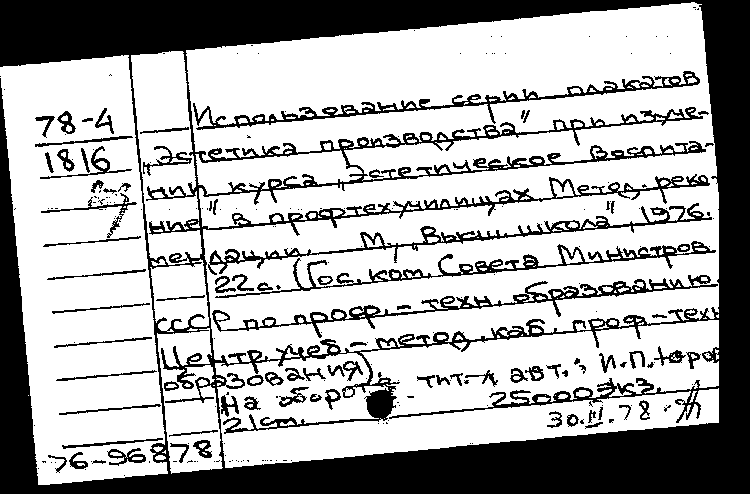 78-4
1816
Использование серии плакатов
„Эстетика производства" при изуче-
нии курса „Эстетическое воспита-
ние" в профтехучилищах. Метод. реко-
мендации. М., „Высш. школа", 1976.
22 с. (Гос. ком. Совета Министров
СССР по проф.-техн. образованию.
Центр. учеб.-метод. каб. проф-техн
образования).
На обороте тит. л. авт.: И.П.
21 см. 25000 экз.
30.III.78
76-96878